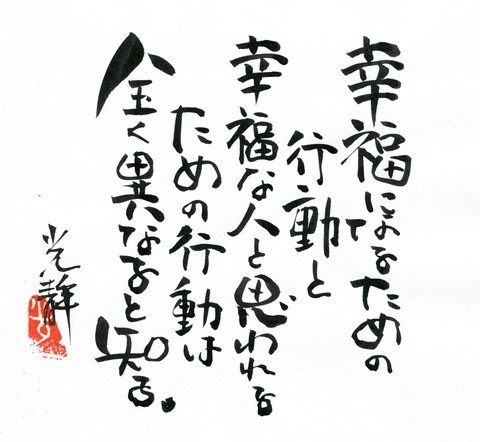 幸福になるための
行動と
幸福な人と思われる
ための行動は
全く異なると知る。
光静